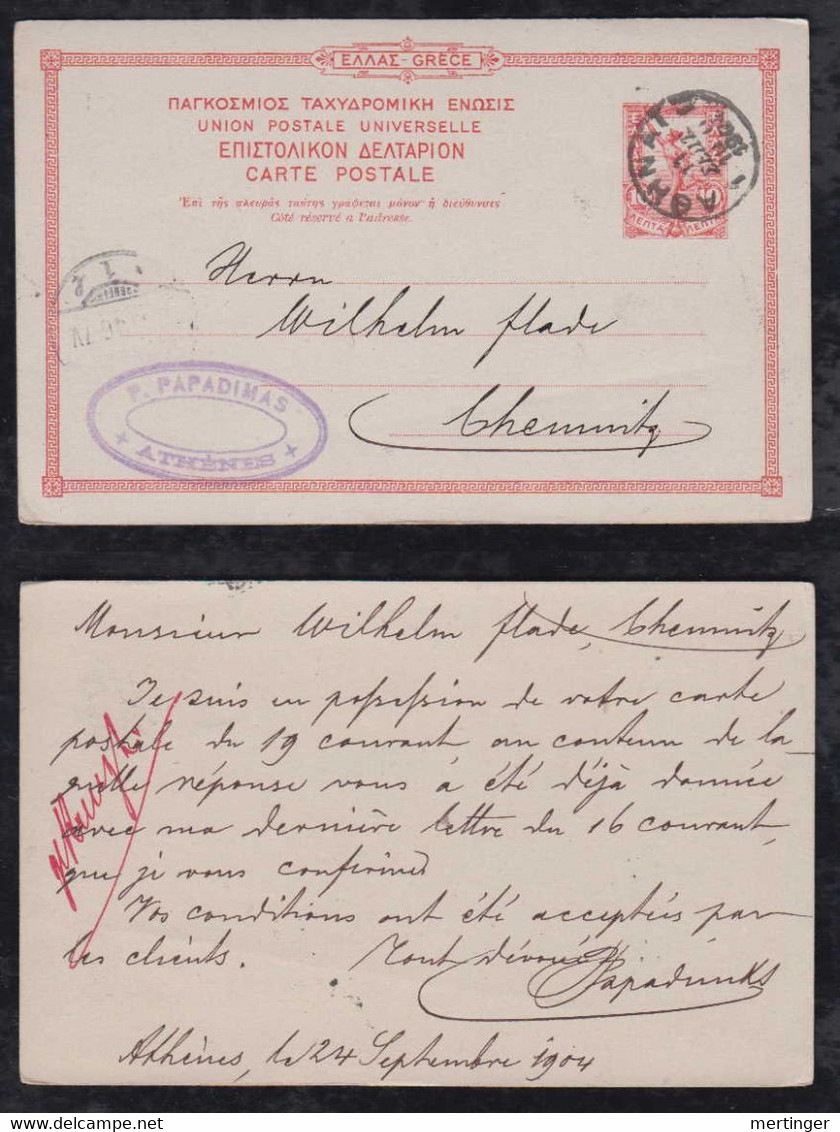 ΕΛΛΑΣ-GRÈCE
ΠΑΓΚΟΣΜΙΟΣ ΤΑΧΥΔΡΟΜΙΚΗ ΕΝΩΣΙΣ
UNION POSTALE UNIVERSELLE
ΕΠΙΣΤΟΛΙΚΟΝ ΔΕΛΤΑΡΙΟΝ
CARTE POSTALE
Ἐπὶ τῆς πλευρᾶς ταύτης γράφεται μόνον ἡ διεύθυνσις
Côté réservé à l'adresse.
ΛΕΠΤΑ ΛΕΠΤΑ
Herrn
Wilhelm Flade
Chemnitz
P. PAPADIMAS
ATHÈNES
Monsieur Wilhelm Flade, Chemnitz
Je suis en possession de votre carte
postale du 19 courant au contenu de la-
quelle réponse vous a été déjà donnée
avec ma dernière lettre du 16 courant,
que je vous confirme
Vos conditions ont été acceptées par
les clients. Tout dévoué
Athènes, le 24 Septembre 1904
mertinger www.mertinger.com